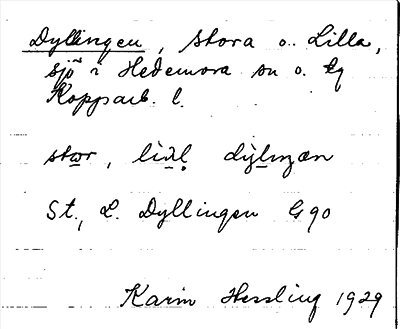 Dyllingen, Stora o. Lilla,
sjö i Hedemora sn o. tg
Kopparb. l.
stor, lill dylingen
St., L. Dyllingen G 90
Karin Hessling 1929